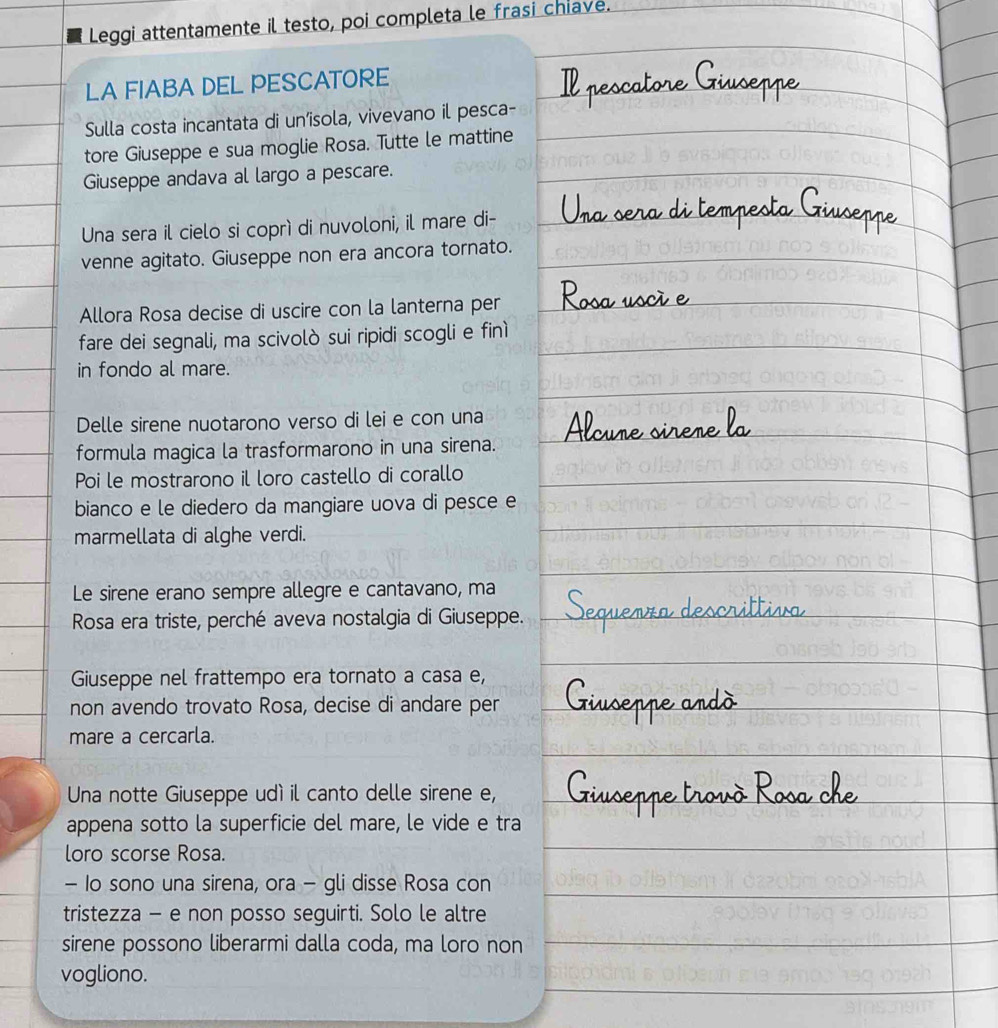 Leggi attentamente il testo, poi completa le frasi chiave.
LA FIABA DEL PESCATORE
Sulla costa incantata di un'isola, vivevano il pesca-
tore Giuseppe e sua moglie Rosa. Tutte le mattine
Giuseppe andava al largo a pescare.
Il pescatore Giuseppe
Una sera il cielo si coprì di nuvoloni, il mare di-
venne agitato. Giuseppe non era ancora tornato.
Una sera di tempesta Giuseppe
Allora Rosa decise di uscire con la lanterna per
fare dei segnali, ma scivolò sui ripidi scogli e finì
in fondo al mare.
Rosa uscì e
Delle sirene nuotarono verso di lei e con una
formula magica la trasformarono in una sirena.
Poi le mostrarono il loro castello di corallo
bianco e le diedero da mangiare uova di pesce e
marmellata di alghe verdi.
Alcune sirene la
Le sirene erano sempre allegre e cantavano, ma
Rosa era triste, perché aveva nostalgia di Giuseppe.
Sequenza descrittiva
Giuseppe nel frattempo era tornato a casa e,
non avendo trovato Rosa, decise di andare per
mare a cercarla.
Giuseppe andò
Una notte Giuseppe udì il canto delle sirene e,
appena sotto la superficie del mare, le vide e tra
loro scorse Rosa.
– Io sono una sirena, ora – gli disse Rosa con
tristezza – e non posso seguirti. Solo le altre
sirene possono liberarmi dalla coda, ma loro non
vogliono.
Giuseppe trovò Rosa che